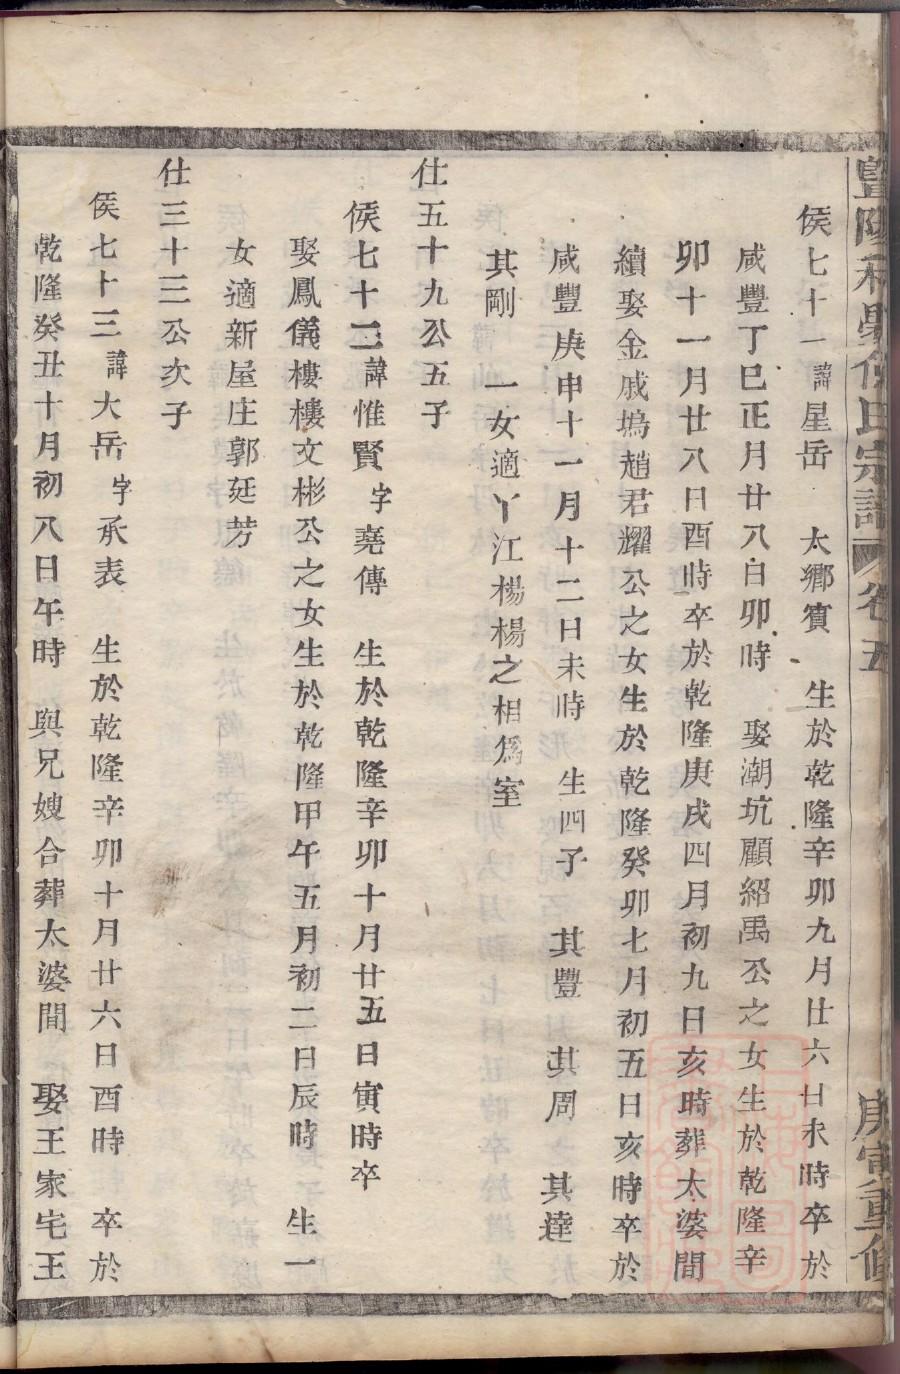 暨陽禾嶨侯氏宗譜 卷五 庚寅重修
侯七十一諱星岳 太鄉賓 生於乾隆辛卯九月廿六日未時卒於
咸豐丁巳正月廿八日卯時 娶潮坑顧紹禹公之女生於乾隆辛
卯十一月廿八日酉時卒於乾隆庚戌四月初九日亥時葬太婆間
續娶金戚塢趙君耀公之女生於乾隆癸卯七月初五日亥時卒於
咸豐庚申十一月十二日未時 生四子 其豐 其周 其達
其剛 一女適丫江楊楊之相為室
仕五十九公五子
侯七十二諱惟賢字堯傳 生於乾隆辛卯十月廿五日寅時卒
娶鳳儀樓樓文彬公之女生於乾隆甲午五月初二日辰時 生一
女適新屋庄郭廷芳
仕三十三公次子
侯七十三諱大岳字承表 生於乾隆辛卯十月廿六日酉時 卒於
乾隆癸丑十月初八日午時 與兄嫂合葬太婆間 娶王家宅王